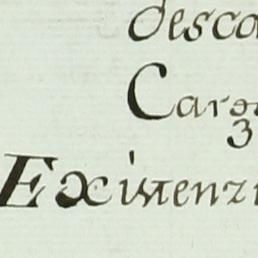 desca
Carg
3
Existenzi